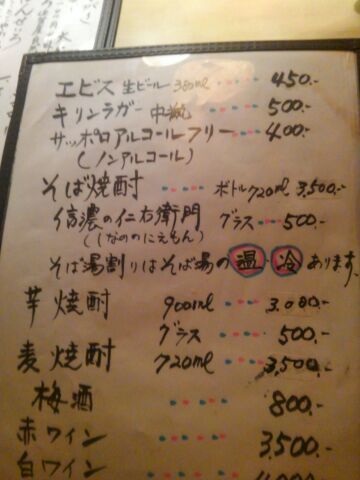 エビス 生ビール 350ml ---- 450.-
キリンラガー 中瓶 ---- 500.-
サッポロアルコールフリー ---- 400.-
(ノンアルコール)
そば焼酎 ---- ボトル720ml 3,500.-
信濃の仁右衛門 グラス -- 500.-
(しなののにえもん)
そば湯割りはそば湯の温 冷 あります。
芋焼酎 900ml ---- 3,000.-
グラス ---- 500.-
麦焼酎 720ml ---- 3,500.-
梅酒 ---- 800.-
赤ワイン ---- 3,500.-
白ワイン ----